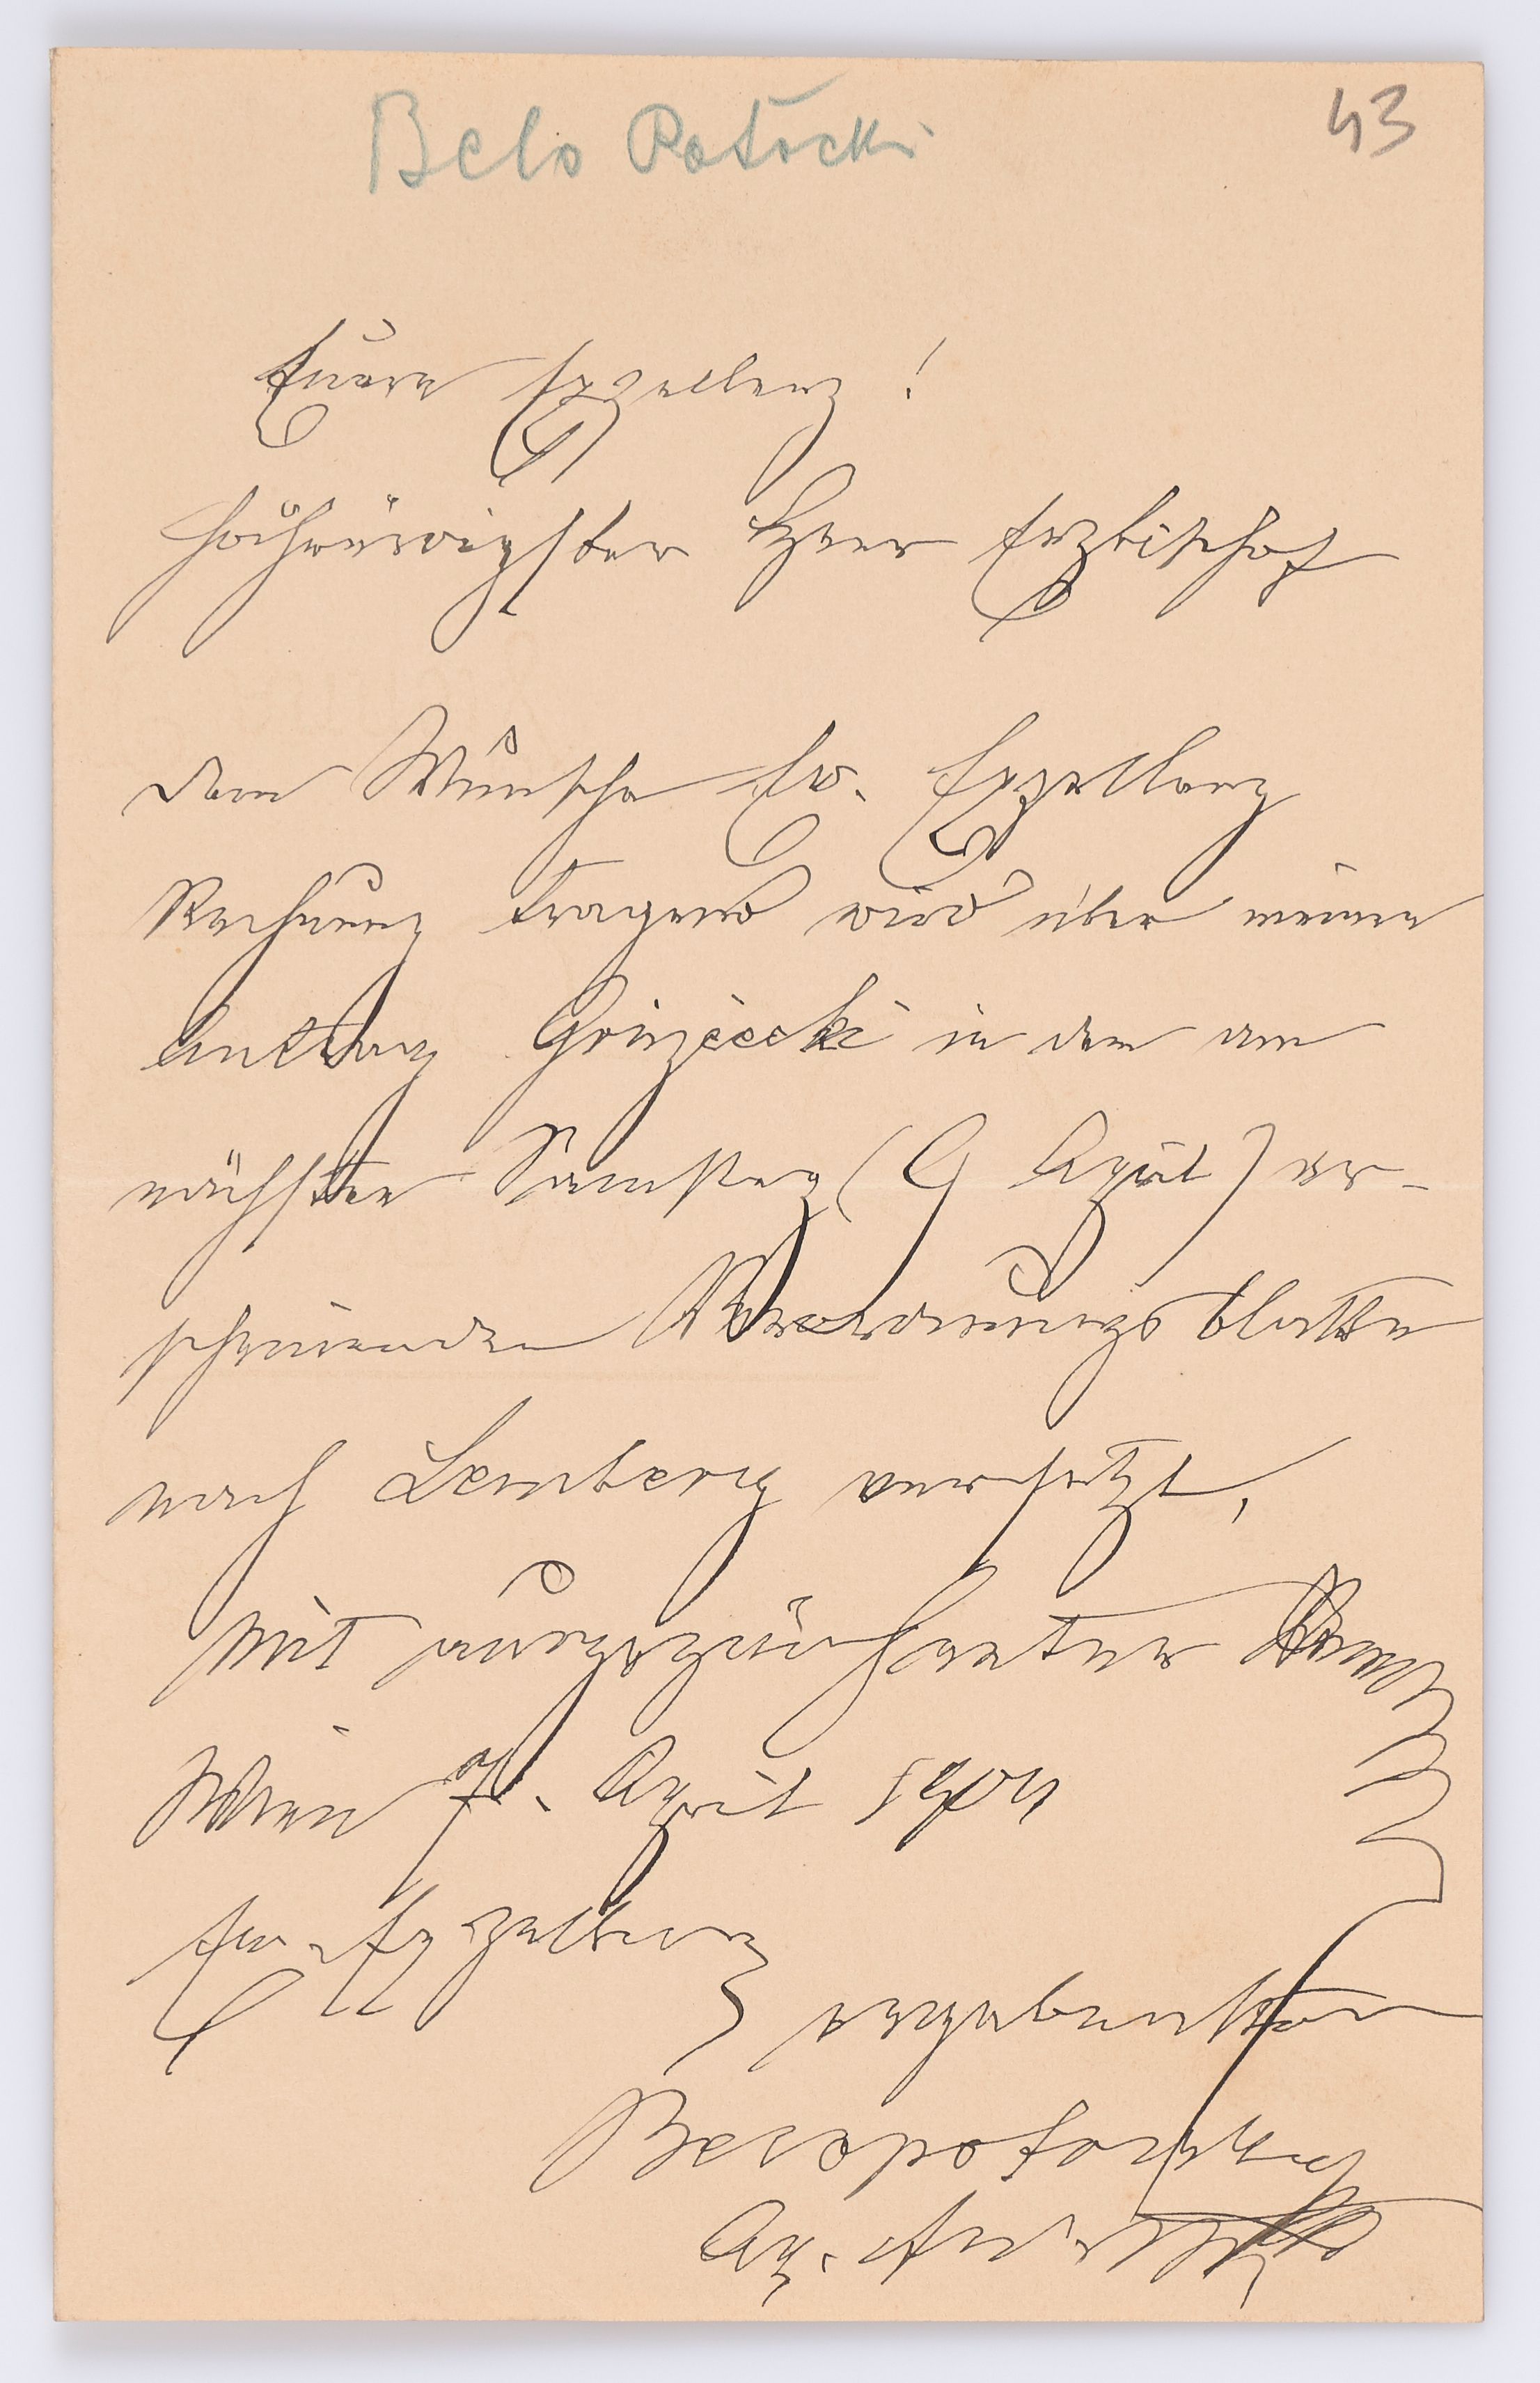 Belo Potocki
43
Euere Exzellenz!
Hochwürdigster Herr Erzbischof
Dem Wunsche Ew. Exzellenz
Rechnung tragend wird über meinen
Antrag in dem am
nächsten Samstag (9 April) er-
scheinenden Verordnungsblatte
nach Lemberg versetzt.
Mit ausgezeichneter
Wien 7. April 1904
Ew. Exzellenz
ergebenster
Belopotoczky
Ap.